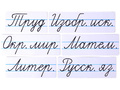 Труд Изобр. иск.
Окр. мир Матем.
Литер. Русск. яз.